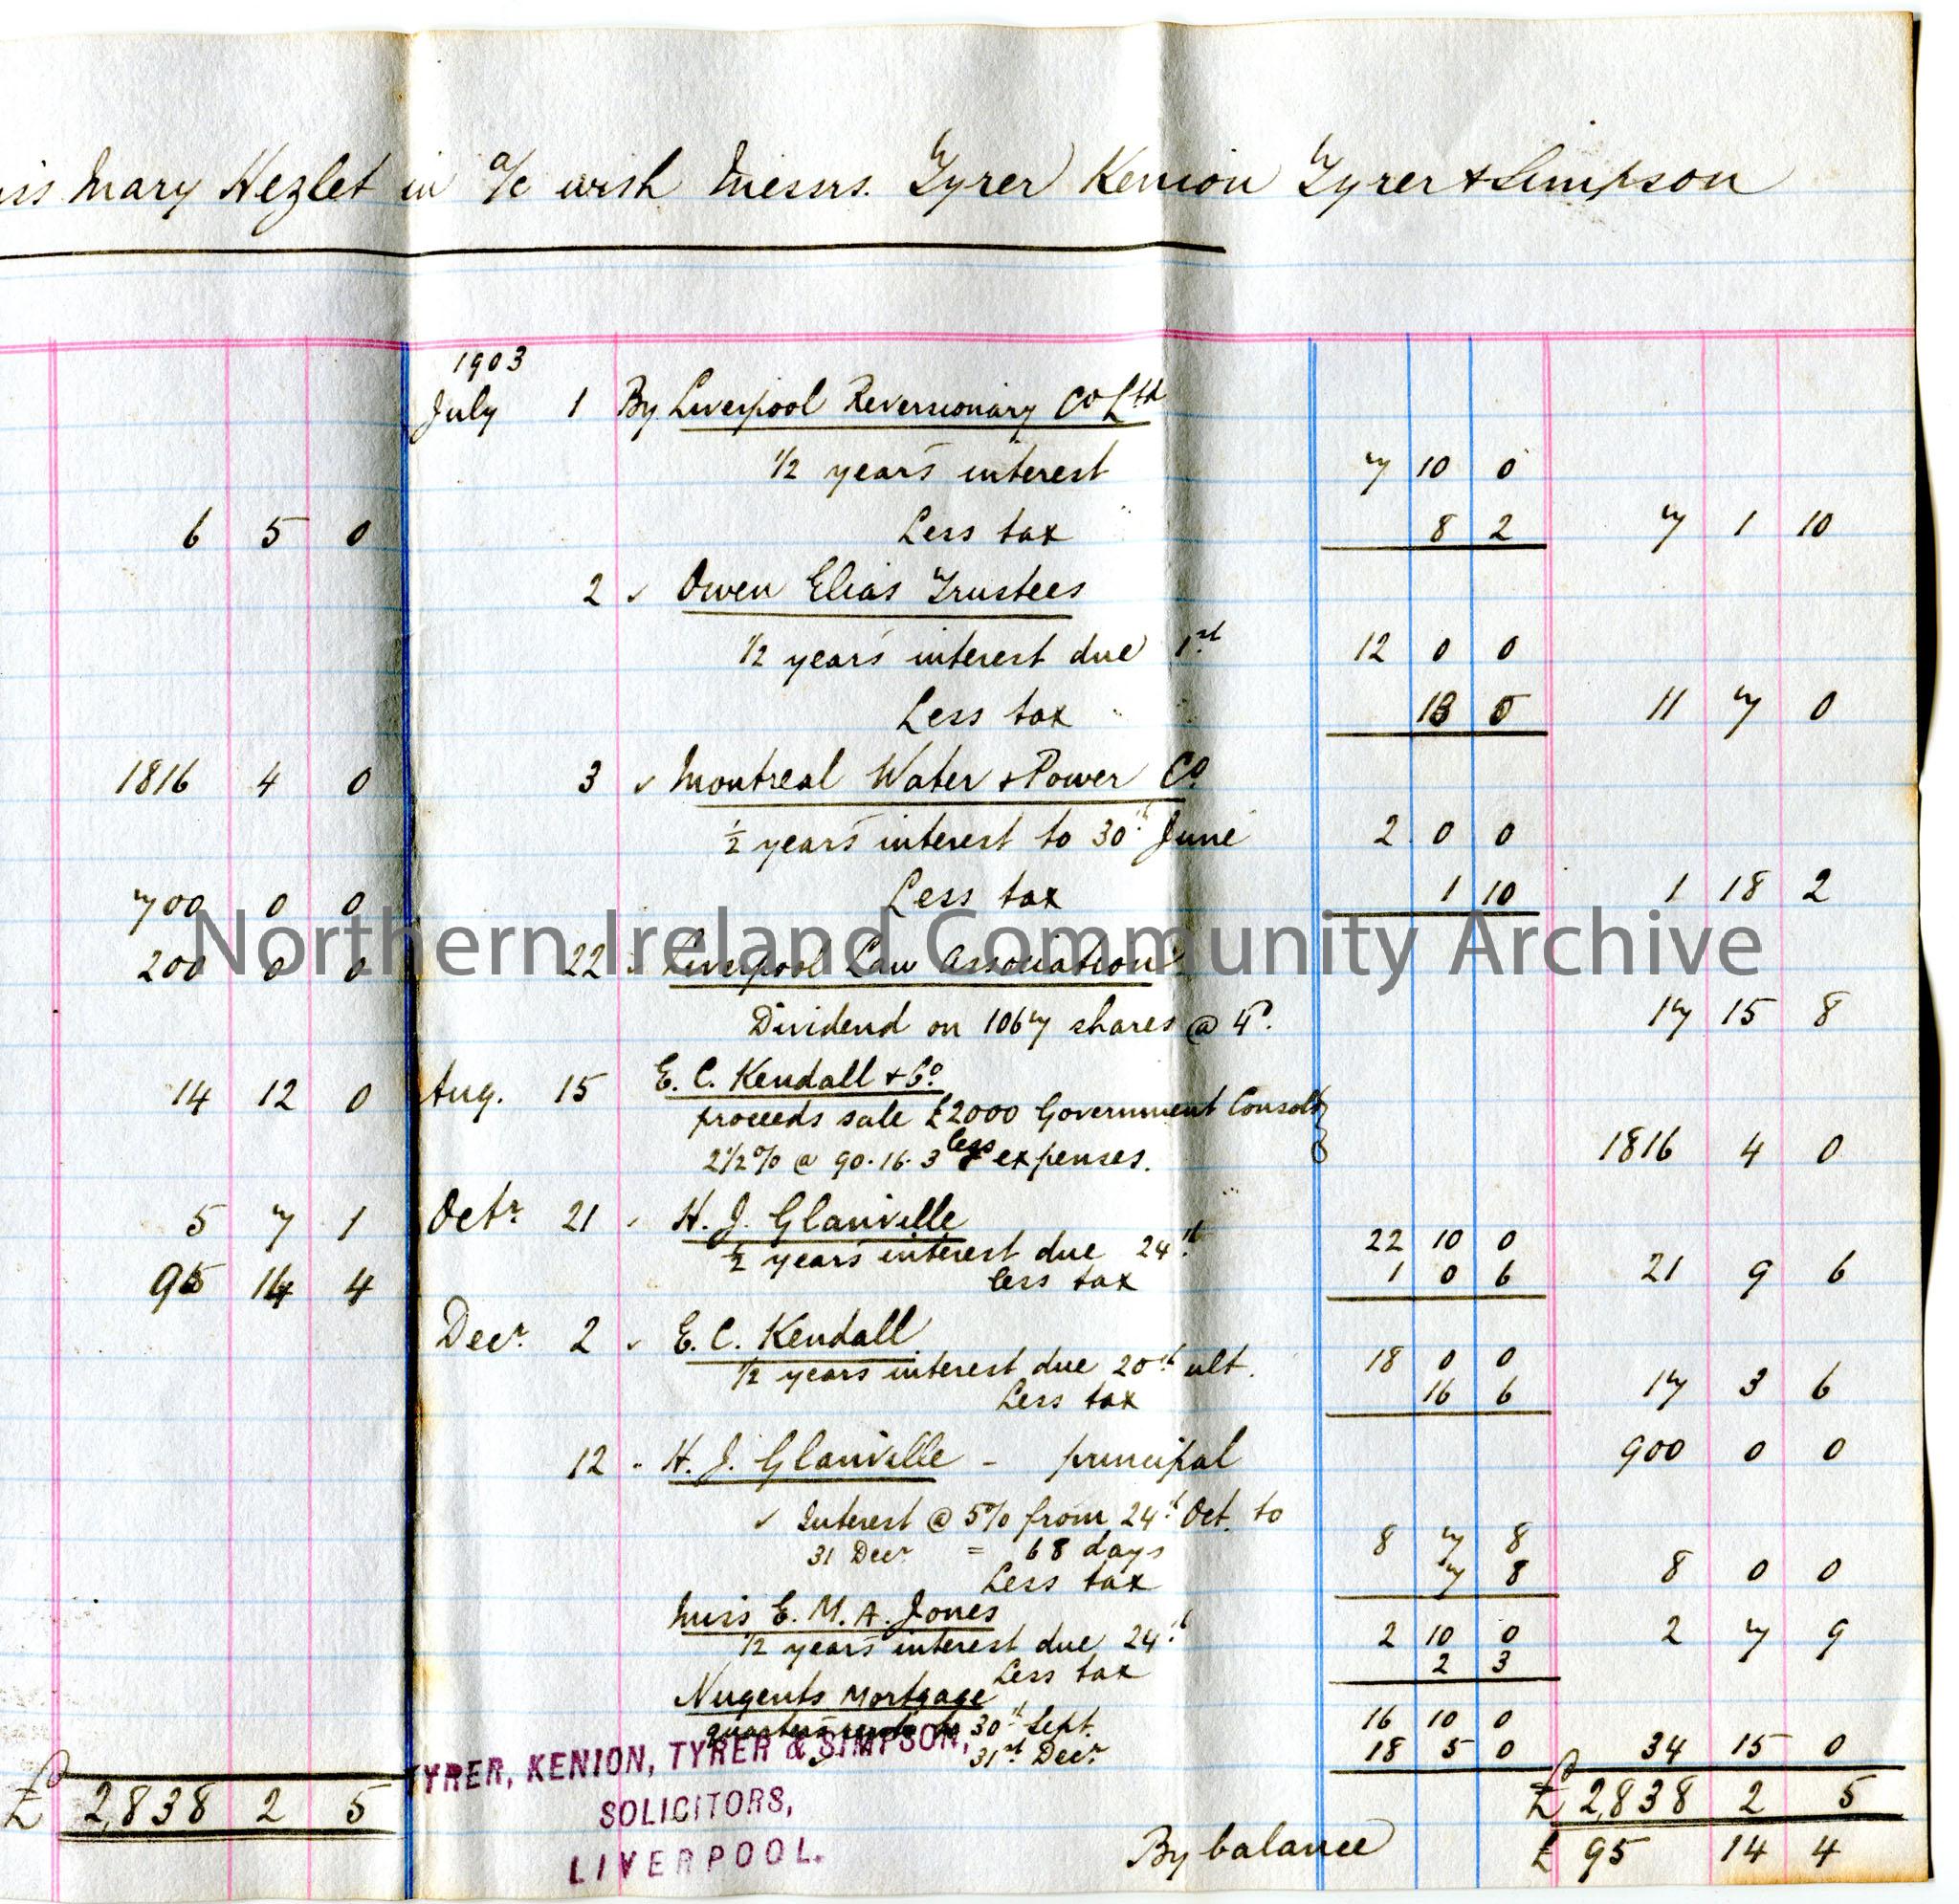 iss Mary Hezlet in a/c with Messrs. Tyrer Kenion Tyrer & Simpson
1903
July 1 By Liverpool Reversionary Co Ltd
1/2 years interest 7 10 0
6 5 0 Less tax 8 2 7 1 10
2 " Owen Elias Trustees
1/2 years interest due 1st 12 0 0
Less tax 13 0 11 7 0
1816 4 0 3 " Montreal Water & Power Co.
1/2 years interest to 30th June 2 0 0
700 0 0 Less tax 1 10 1 18 2
200 0 0 22 " Liverpool Law Association
Dividend on 1067 shares @ 4d. 17 15 8
14 12 0 Aug. 15 E. C. Kendall & Co.
proceeds sale £2000 Government Consols
2 1/2 % @ 90.16.3 less expenses. 1816 4 0
5 7 1 Octr. 21 " H. J. Glanville
1/2 years interest due 24th 22 10 0
95 14 4 less tax 1 0 6 21 9 6
Decr. 2 " E. C. Kendall
1/2 years interest due 20th ult. 18 0 0
Less tax 16 6 17 3 6
12 " H. J. Glanville - principal 900 0 0
" Interest @ 5% from 24th Oct. to
31 Decr = 68 days 8 7 8
Less tax 7 8 8 0 0
Miss E. M. A. Jones
1/2 years interest due 24th 2 10 0 2 7 9
Less tax 2 3
Nugents Mortgage
quarters rents to 30th Sept. 16 10 0
31st Decr 18 5 0 34 15 0
£ 2,838 2 5 £ 2,838 2 5
By balance £ 95 14 4
TYRER, KENION, TYRER & SIMPSON,
SOLICITORS,
LIVERPOOL.
Northern Ireland Community Archive